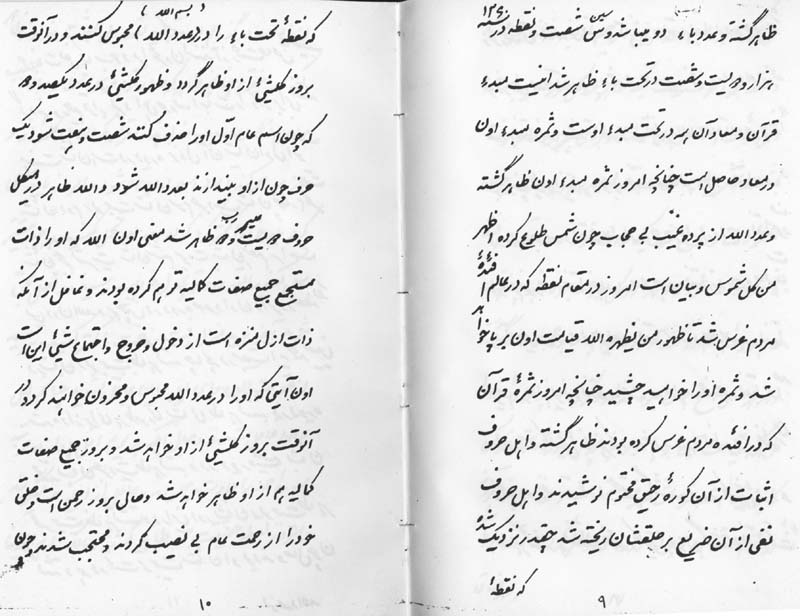 ظاهر گشته و عدد باء دو میباشد و سین شصت و نقطه در سنه ۱۲۶۰
هزار و دویست و شصت در تحت باء ظاهر شد اینست مبدء
قرآن و معاد آن هم در تحت مبدء اوست و ثمره مبدء اون
در معاد حاصل است چنانچه امروز ثمره مبدء اون ظاهر گشته
و عدد الله از پرده غیب بی حجاب چون شمس طلوع کرده اظهر
من کل شموس و بیان است امروز در مقام نقطه که در عالم افئدهٔ
مردم غرس شد تا ظهور من یظهره الله قیامت اون بر پا خواهد
شد و ثمره او را خواهید چشید چنانچه امروز ثمرهٔ قرآن
که در افئده مردم غرس کرده بودند ظاهر گشته و اهل حروف
اثبات از آن کورهٔ رحیق مختوم نوشیدند و اهل حروف
نفی از آن ضریع بر حلقشان ریخته شد چقدر نزدیک شد
که نقطهٔ
۹
(بسم الله)
که نقطهٔ تحت باء را در (عدد الله) محبوس کنند و در آنوقت
بروز کلشیئ از او ظاهر گردد و ظهور کلشیئ در عدد یکصد و
که چون اسم عام اول او را حذف کنند شصت و هفت شود یک
حرف چون از او بیندازند بعدد الله شود و الله ظاهر در هیکل
حروف دویست و دو رب ظاهر شد معنی اون الله که او را ذات
مستجمع جمیع صفات کمالیه قرار کرده بودند و غافل از آنکه
ذات ازل منزه است از دخول و خروج و اجتماع شیئ این است
اون آیتی که او را در عدد الله محبوس و محزون خواهند کرد در
آنوقت بروز کلشیئ از او خواهد شد و بروز جمیع صفات
کمالیه هم از او ظاهر خواهد شد و حال بروز رحمن است و خلق
خود را از رحمت عام بی نصیب کردند و محتجب شدند و چون
۱۰